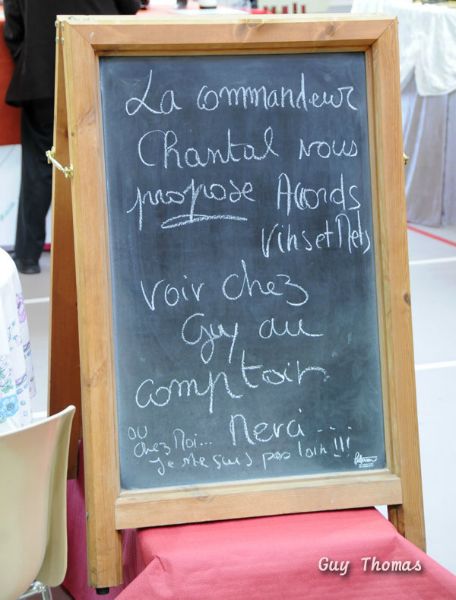 La commandeur
Chantal nous
propose Accords
Vins et Mets
Voir chez
Guy au
comptoir
Merci...
ou
chez Moi...
Je ne suis pas loin !!!
Guy Thomas